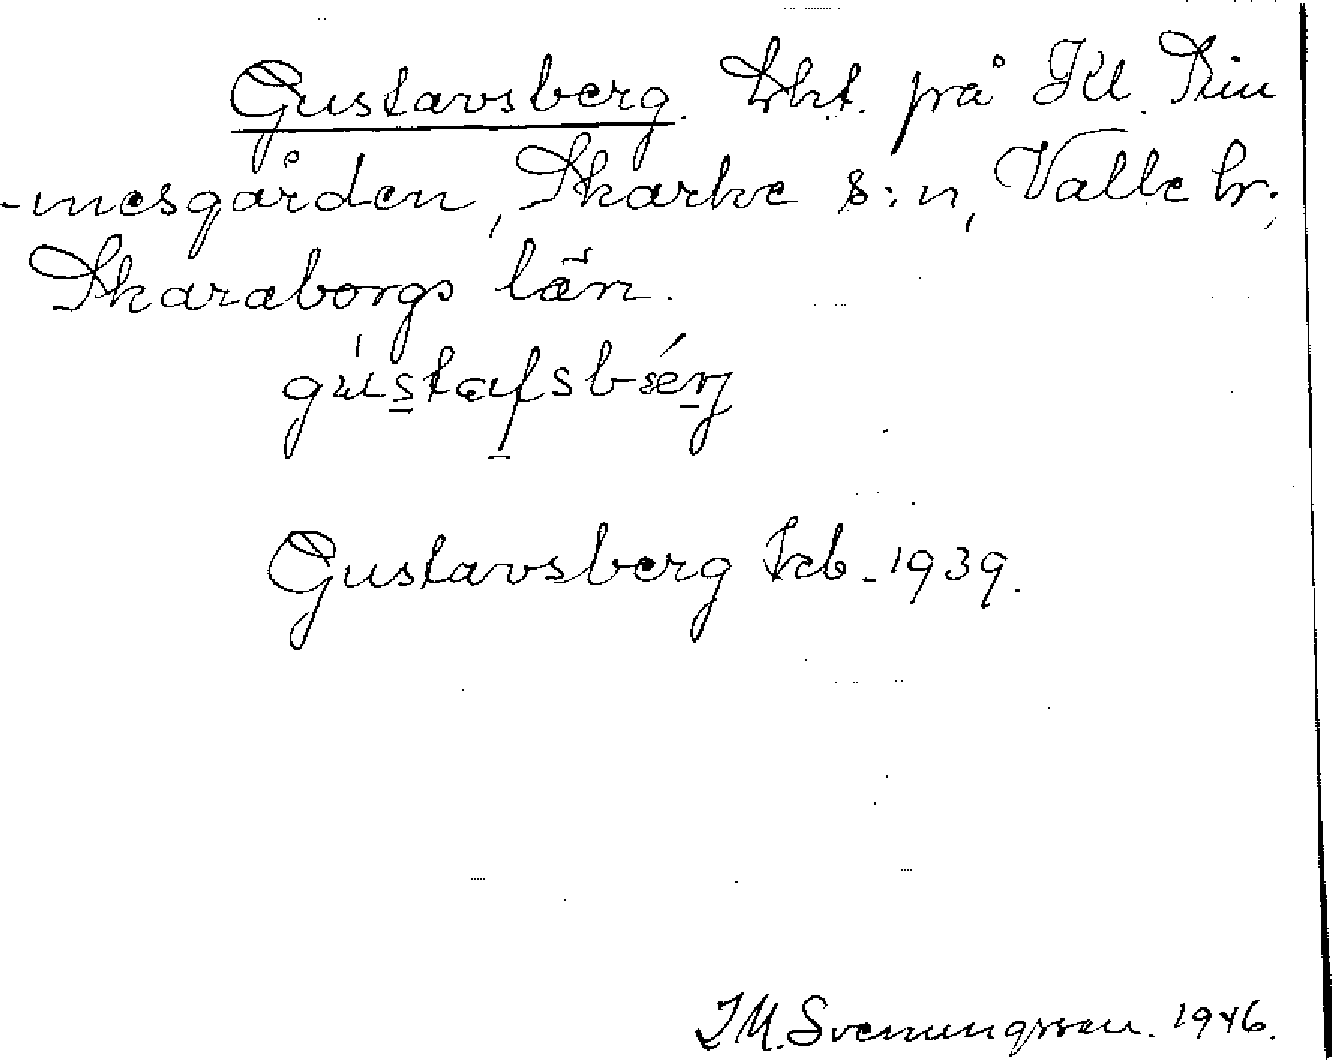 Gustavsberg. Lht. på Kl. Rin
-mesgården, Skarke s:n, Valle hr.,
Skaraborgs län.
gústafsbærj
Gustavsberg Jrb. 1939.
I M. Svenungsson. 1946.